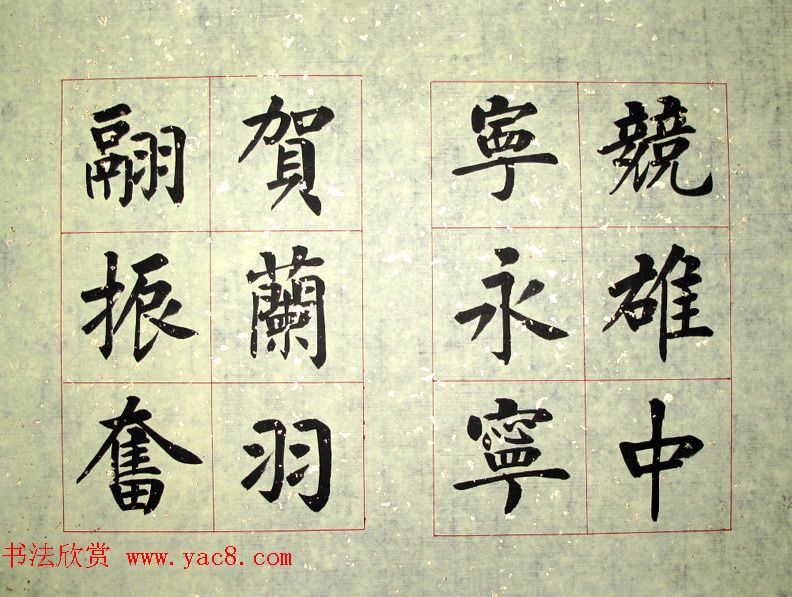 競雄中
寧永寧
賀蘭羽
翮振奮
书法欣赏 www.yac8.com